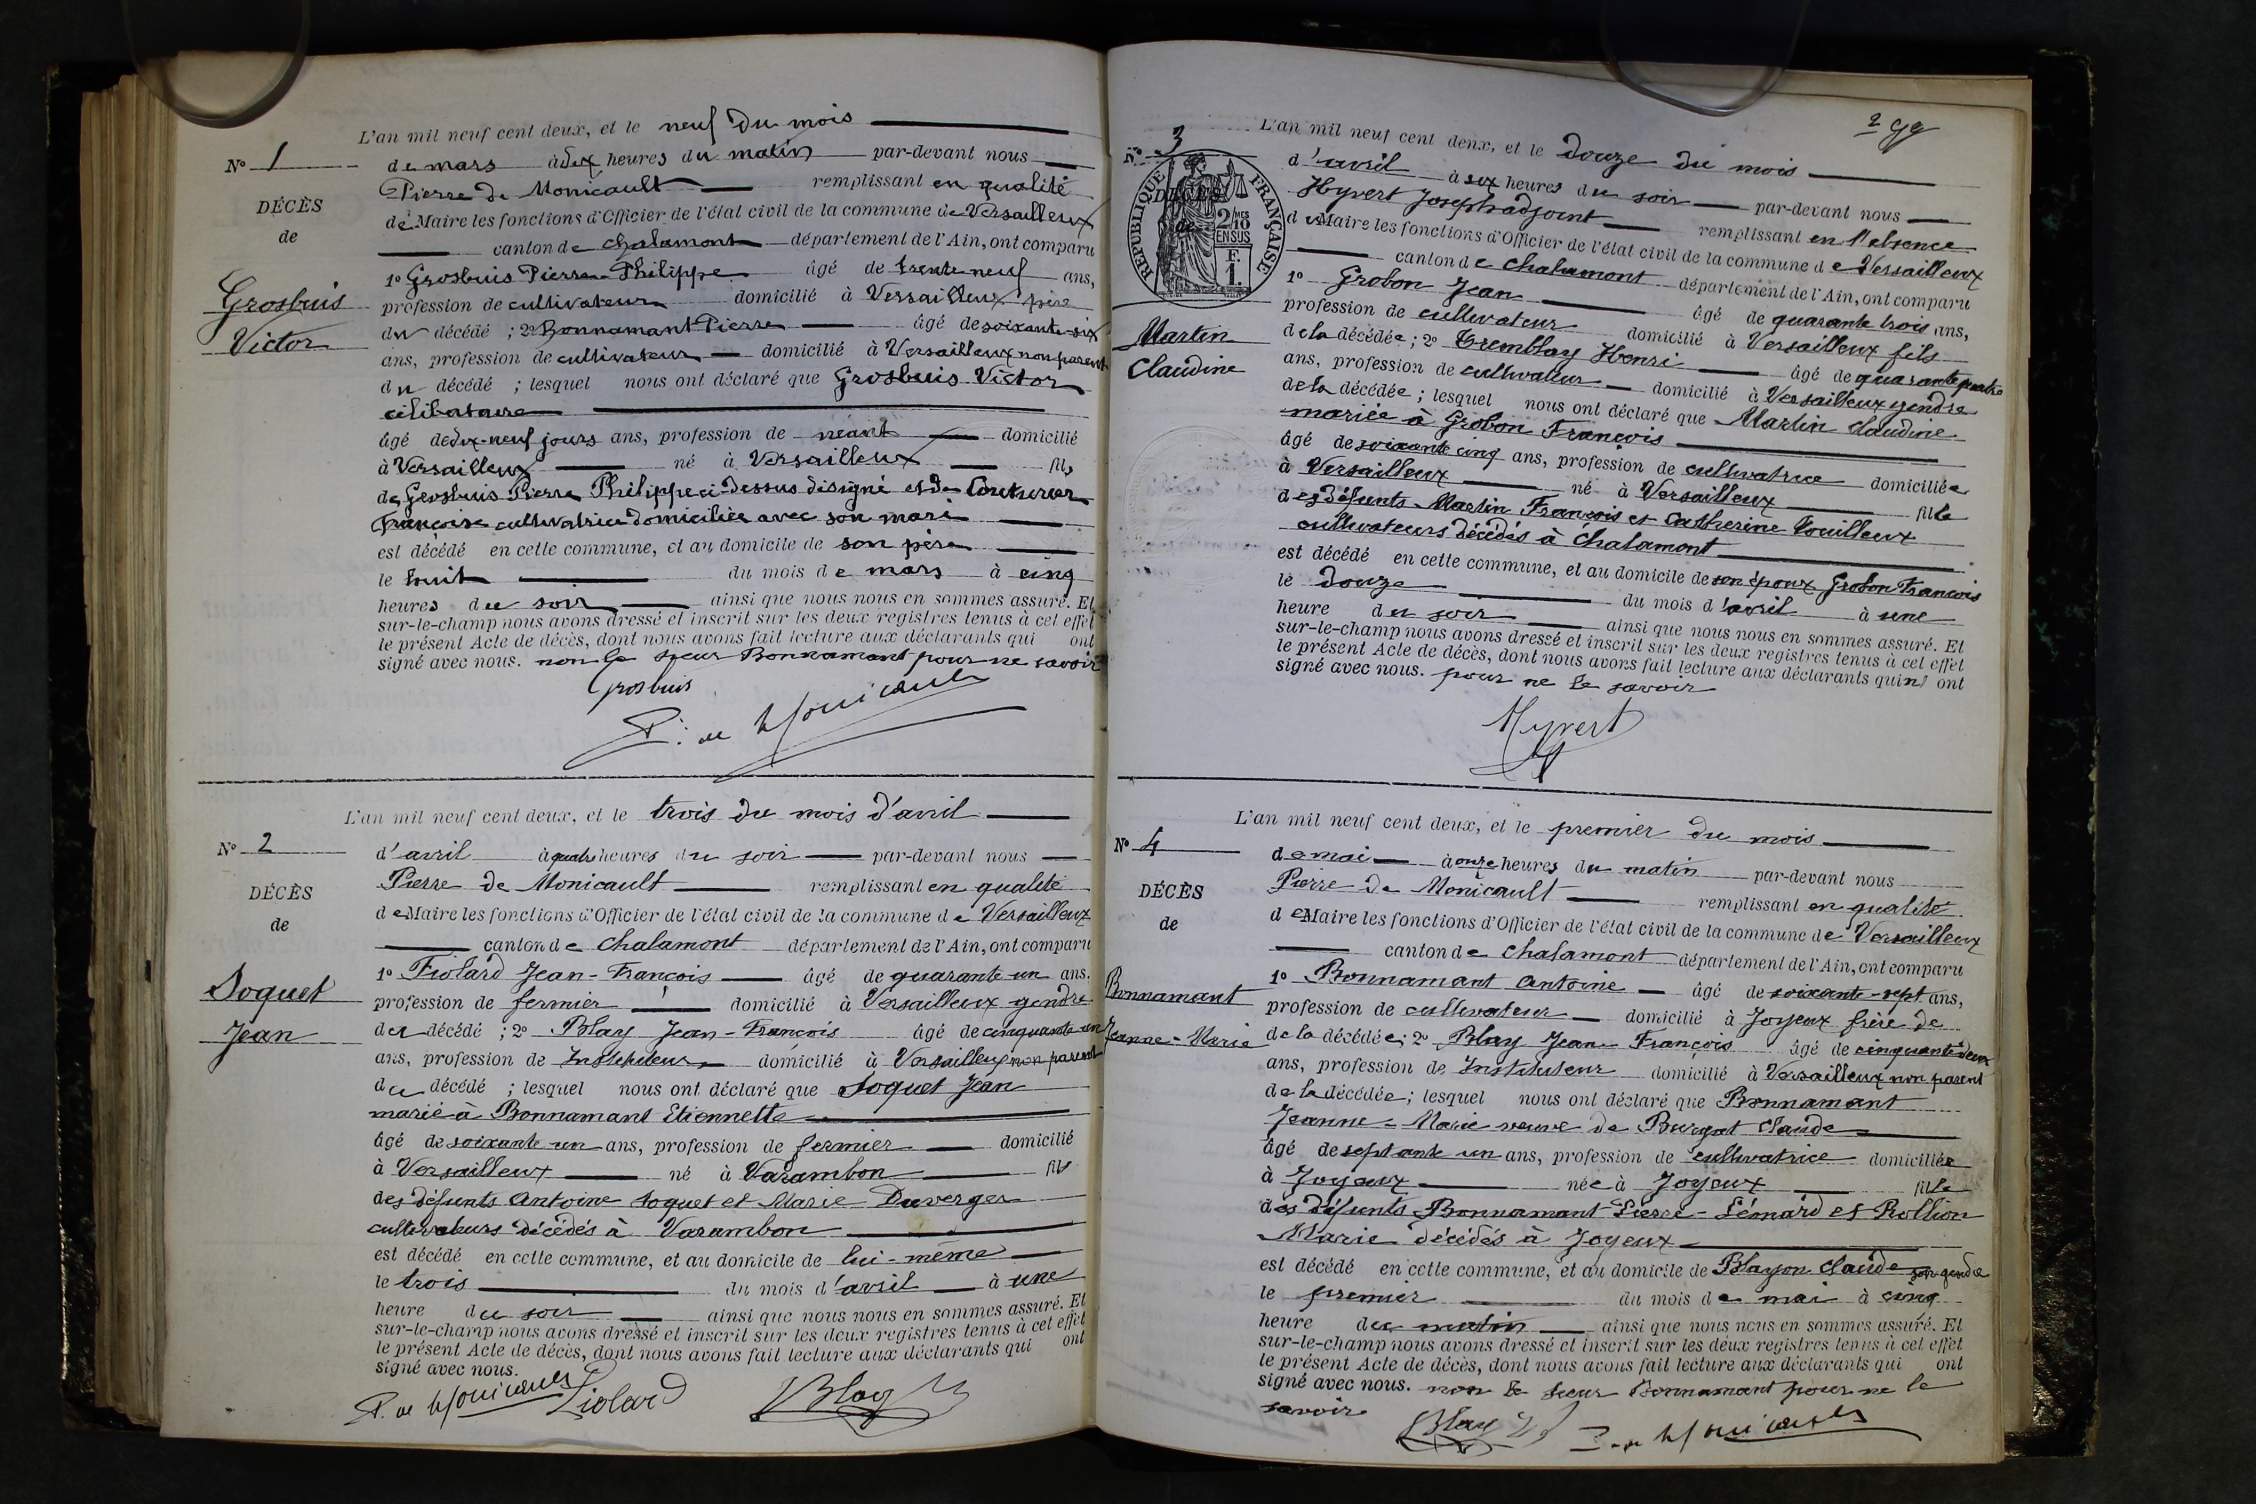 L'an mil neuf cent deux, et le neuf du mois
N° 1
de mars à dix heures du matin par-devant nous
Pierre de Monicault remplissant en qualité
DÉCÈS
de Maire les fonctions d'Officier de l'état civil de la commune de Versailleux
de
canton de Chalamont département de l'Ain, ont comparu
1° Grosbuis Pierre Philippe âgé de trente neuf ans,
Grosbuis
Victor
profession de cultivateur domicilié à Versailleux père
du décédé ; 2° Bonnamant Pierre âgé de soixante-six
ans, profession de cultivateur domicilié à Versailleux non parent
du décédé ; lesquel nous ont déclaré que Grosbuis Victor
célibataire
âgé de dix-neuf jours ans, profession de néant domicilié
à Versailleux né à Versailleux fils
de Grosbuis Pierre Philippe ci-dessus désigné et de Couturier
Françoise cultivatrice domiciliée avec son mari
est décédé en cette commune, et au domicile de son père
le huit du mois de mars à cinq
heures du soir ainsi que nous nous en sommes assuré. Et
sur-le-champ nous avons dressé et inscrit sur les deux registres tenus à cet effet
le présent Acte de décès, dont nous avons fait lecture aux déclarants qui ont
signé avec nous. non le sieur Bonnamant pour ne savoir
Grosbuis
P. de Monicault
L'an mil neuf cent deux, et le trois du mois d'avril
N° 2
d'avril à quatre heures du soir par-devant nous
Pierre de Monicault remplissant en qualité
DÉCÈS
de Maire les fonctions d'Officier de l'état civil de la commune de Versailleux
de
canton de Chalamont département de l'Ain, ont comparu
1° Fiolard Jean-François âgé de quarante-un ans.
Soquet
Jean
profession de fermier domicilié à Versailleux gendre
du décédé ; 2° Blay Jean-François âgé de cinquante-un
ans, profession de Instituteur domicilié à Versailleux non parent
du décédé ; lesquel nous ont déclaré que Soquet Jean
marié à Bonnamant Etiennette
âgé de soixante-un ans, profession de fermier domicilié
à Versailleux né à Varambon fils
des défunts Antoine Soquet et Marie Duverger
cultivateurs décédés à Varambon
est décédé en cette commune, et au domicile de lui-même
le trois du mois d'avril à une
heure du soir ainsi que nous nous en sommes assuré. Et
sur-le-champ nous avons dressé et inscrit sur les deux registres tenus à cet effet
le présent Acte de décès, dont nous avons fait lecture aux déclarants qui ont
signé avec nous.
P. de Monicault Fiolard Blay
299
L'an mil neuf cent deux, et le douze du mois
N° 3
d'avril à six heures du soir par-devant nous
Hyvert Joseph adjoint remplissant en l'absence
DÉCÈS
de
RÉPUBLIQUE FRANÇAISE
2/10 MES
EN SUS
F.
1.
du Maire les fonctions d'Officier de l'état civil de la commune de Versailleux
canton de Chalamont département de l'Ain, ont comparu
1° Grobon Jean âgé de quarante trois ans,
Martin
Claudine
profession de cultivateur domicilié à Versailleux fils
de la décédée ; 2° Tremblay Henri âgé de quarante quatre
ans, profession de cultivateur domicilié à Versailleux gendre
de la décédée ; lesquel nous ont déclaré que Martin Claudine
mariée à Grobon François
âgé de soixante cinq ans, profession de cultivatrice domiciliée
à Versailleux né à Versailleux fille
des défunts Martin François et Catherine Vouilleux
cultivateurs décédés à Chalamont
est décédé en cette commune, et au domicile de son époux Grobon François
le douze du mois d'avril à une
heure du soir ainsi que nous nous en sommes assuré. Et
sur-le-champ nous avons dressé et inscrit sur les deux registres tenus à cet effet
le présent Acte de décès, dont nous avons fait lecture aux déclarants qui n'ont
signé avec nous. pour ne le savoir
Hyvert
L'an mil neuf cent deux, et le premier du mois
N° 4
de mai à onze heures du matin par-devant nous
Pierre de Monicault remplissant en qualité
DÉCÈS
de Maire les fonctions d'Officier de l'état civil de la commune de Versailleux
de
canton de Chalamont département de l'Ain, ont comparu
1° Bonnamant Antoine âgé de soixante-sept ans,
Bonnamant
Jeanne-Marie
profession de cultivateur domicilié à Joyeux frère de
de la décédée ; 2° Blay Jean-François âgé de cinquante deux
ans, profession de Instituteur domicilié à Versailleux non parent
de la décédée ; lesquel nous ont déclaré que Bonnamant
Jeanne-Marie veuve de Burgat Claude
âgé de septante un ans, profession de cultivatrice domiciliée
à Joyeux née à Joyeux fille
des défunts Bonnamant Pierre-Léonard et Rollion
Marie décédés à Joyeux
est décédé en cette commune, et au domicile de Blayon Claude son gendre
le premier du mois de mai à cinq
heure du matin ainsi que nous nous en sommes assuré. Et
sur-le-champ nous avons dressé et inscrit sur les deux registres tenus à cet effet
le présent Acte de décès, dont nous avons fait lecture aux déclarants qui ont
signé avec nous. non le sieur Bonnamant pour ne le
savoir
Blay P. de Monicault